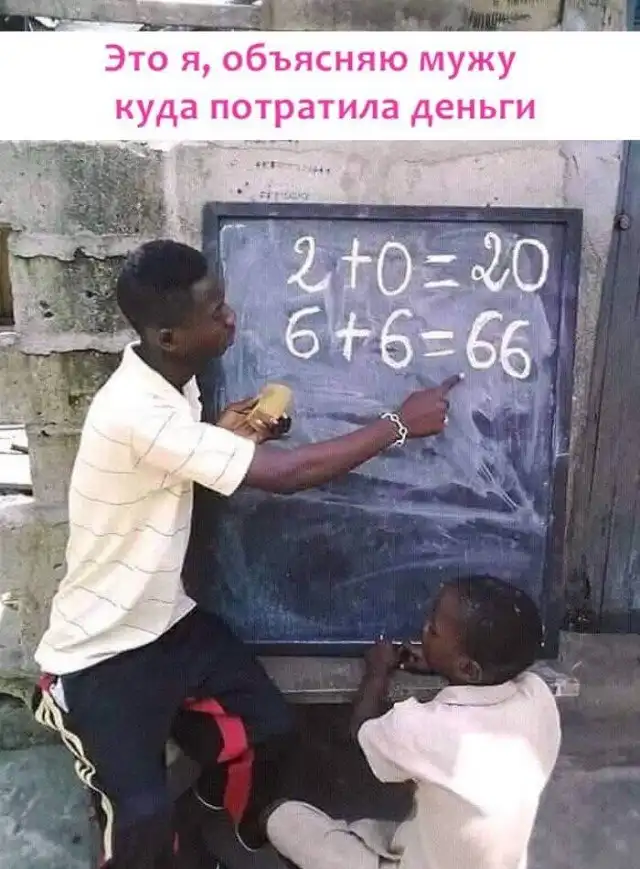 Это я, объясняю мужу
куда потратила деньги
2+0=20
6+6=66